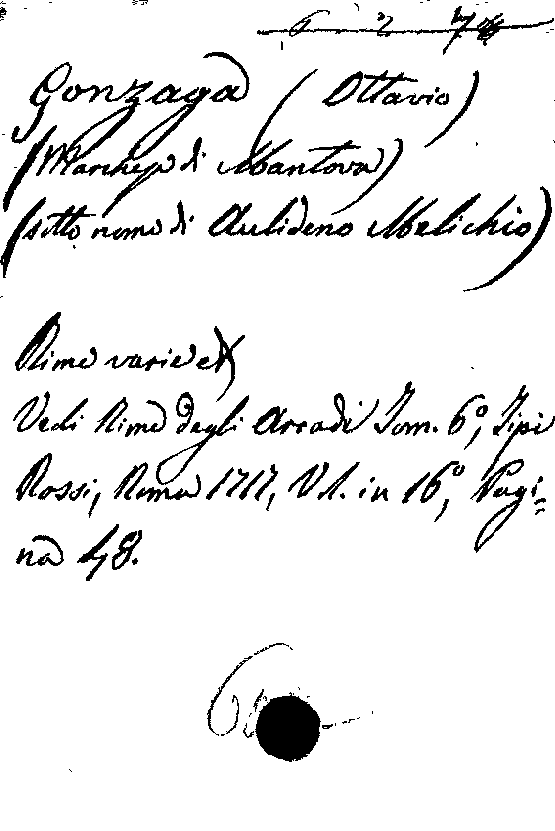 6 2 
Gonzaga (Ottavio)
(Marchese di Mantova)
(sotto nome di Aulideno Melichio)
Rime varie
Vedi Rime degli Arcadi Tom. 6º, Tipi
Rossi, Roma 1717, Vol. in 16º, Pagi=
na 48.